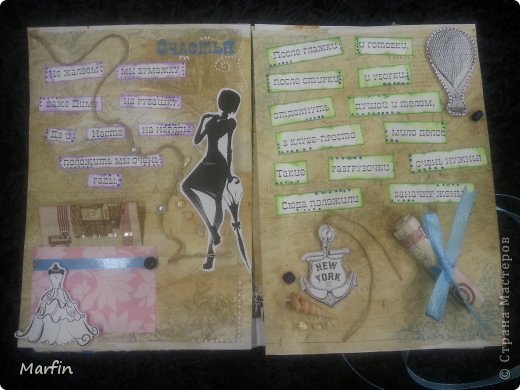 Счастья
Не жалеем мы бумажку
даже Диме на рубашку,
Да и Насте на наряды
положить мы очень
рады.
После глажки и готовки,
после стирки и уборки,
отдохнуть душой и телом,
в клубе-просто мило дело!
Такие разгрузочки очень нужны!
Сюда положили заначку жены!
NEW
YORK
Marfin
© Страна Мастеров